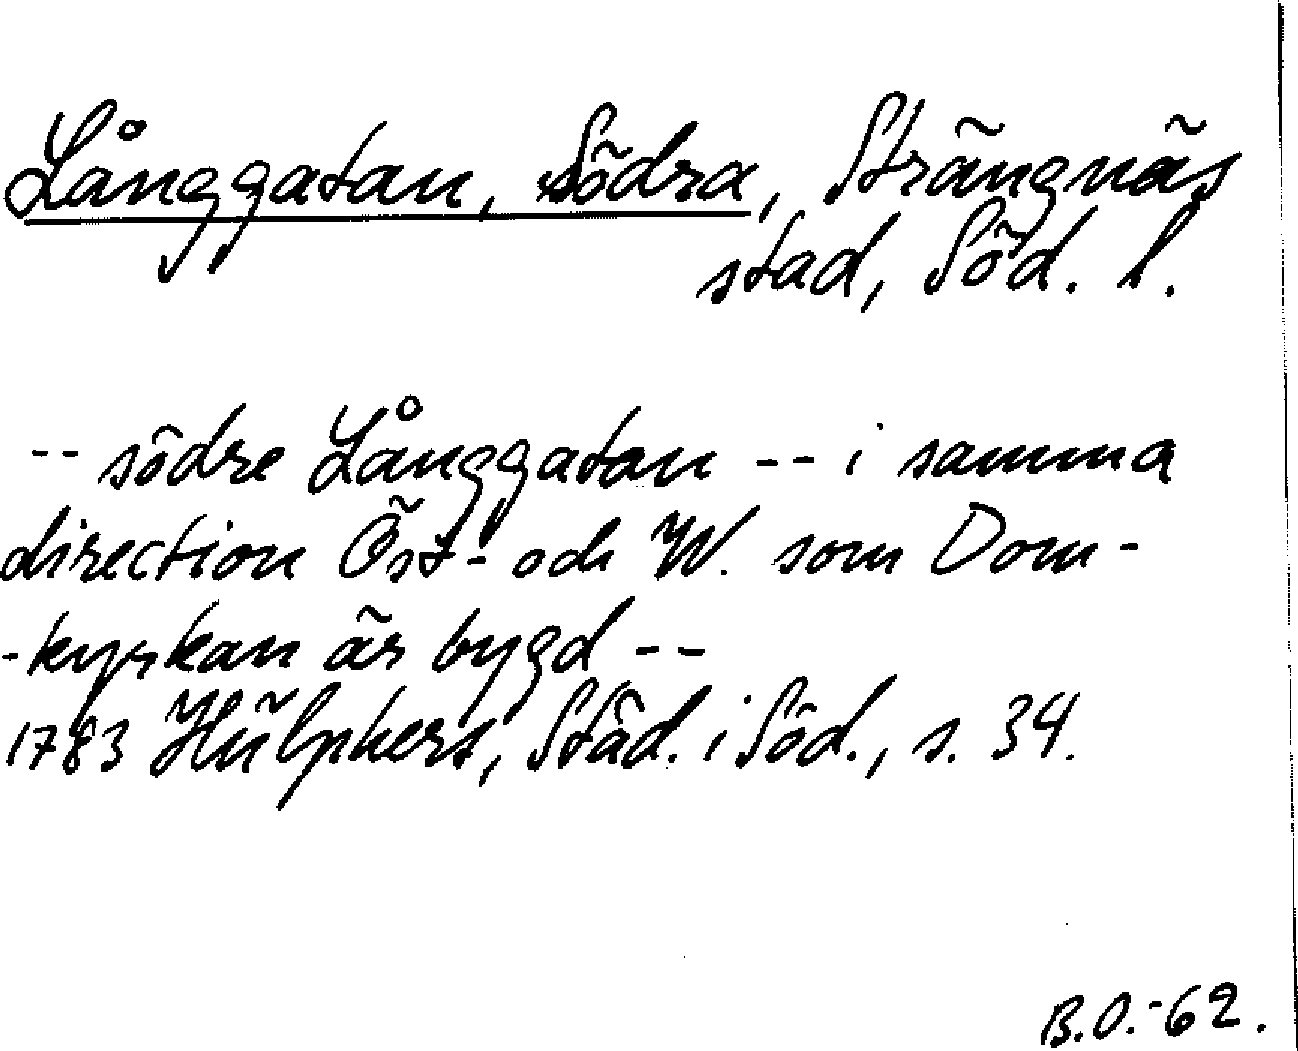 Långgatan, Södra, Strängnäs
stad, Söd. l.
-- södre Långgatan -- i samma
direction Öst- och W. som Dom-
-kyrkan är bygd --
1783 Hülphers, Städ. i Söd., s. 34.
B.O.-62.